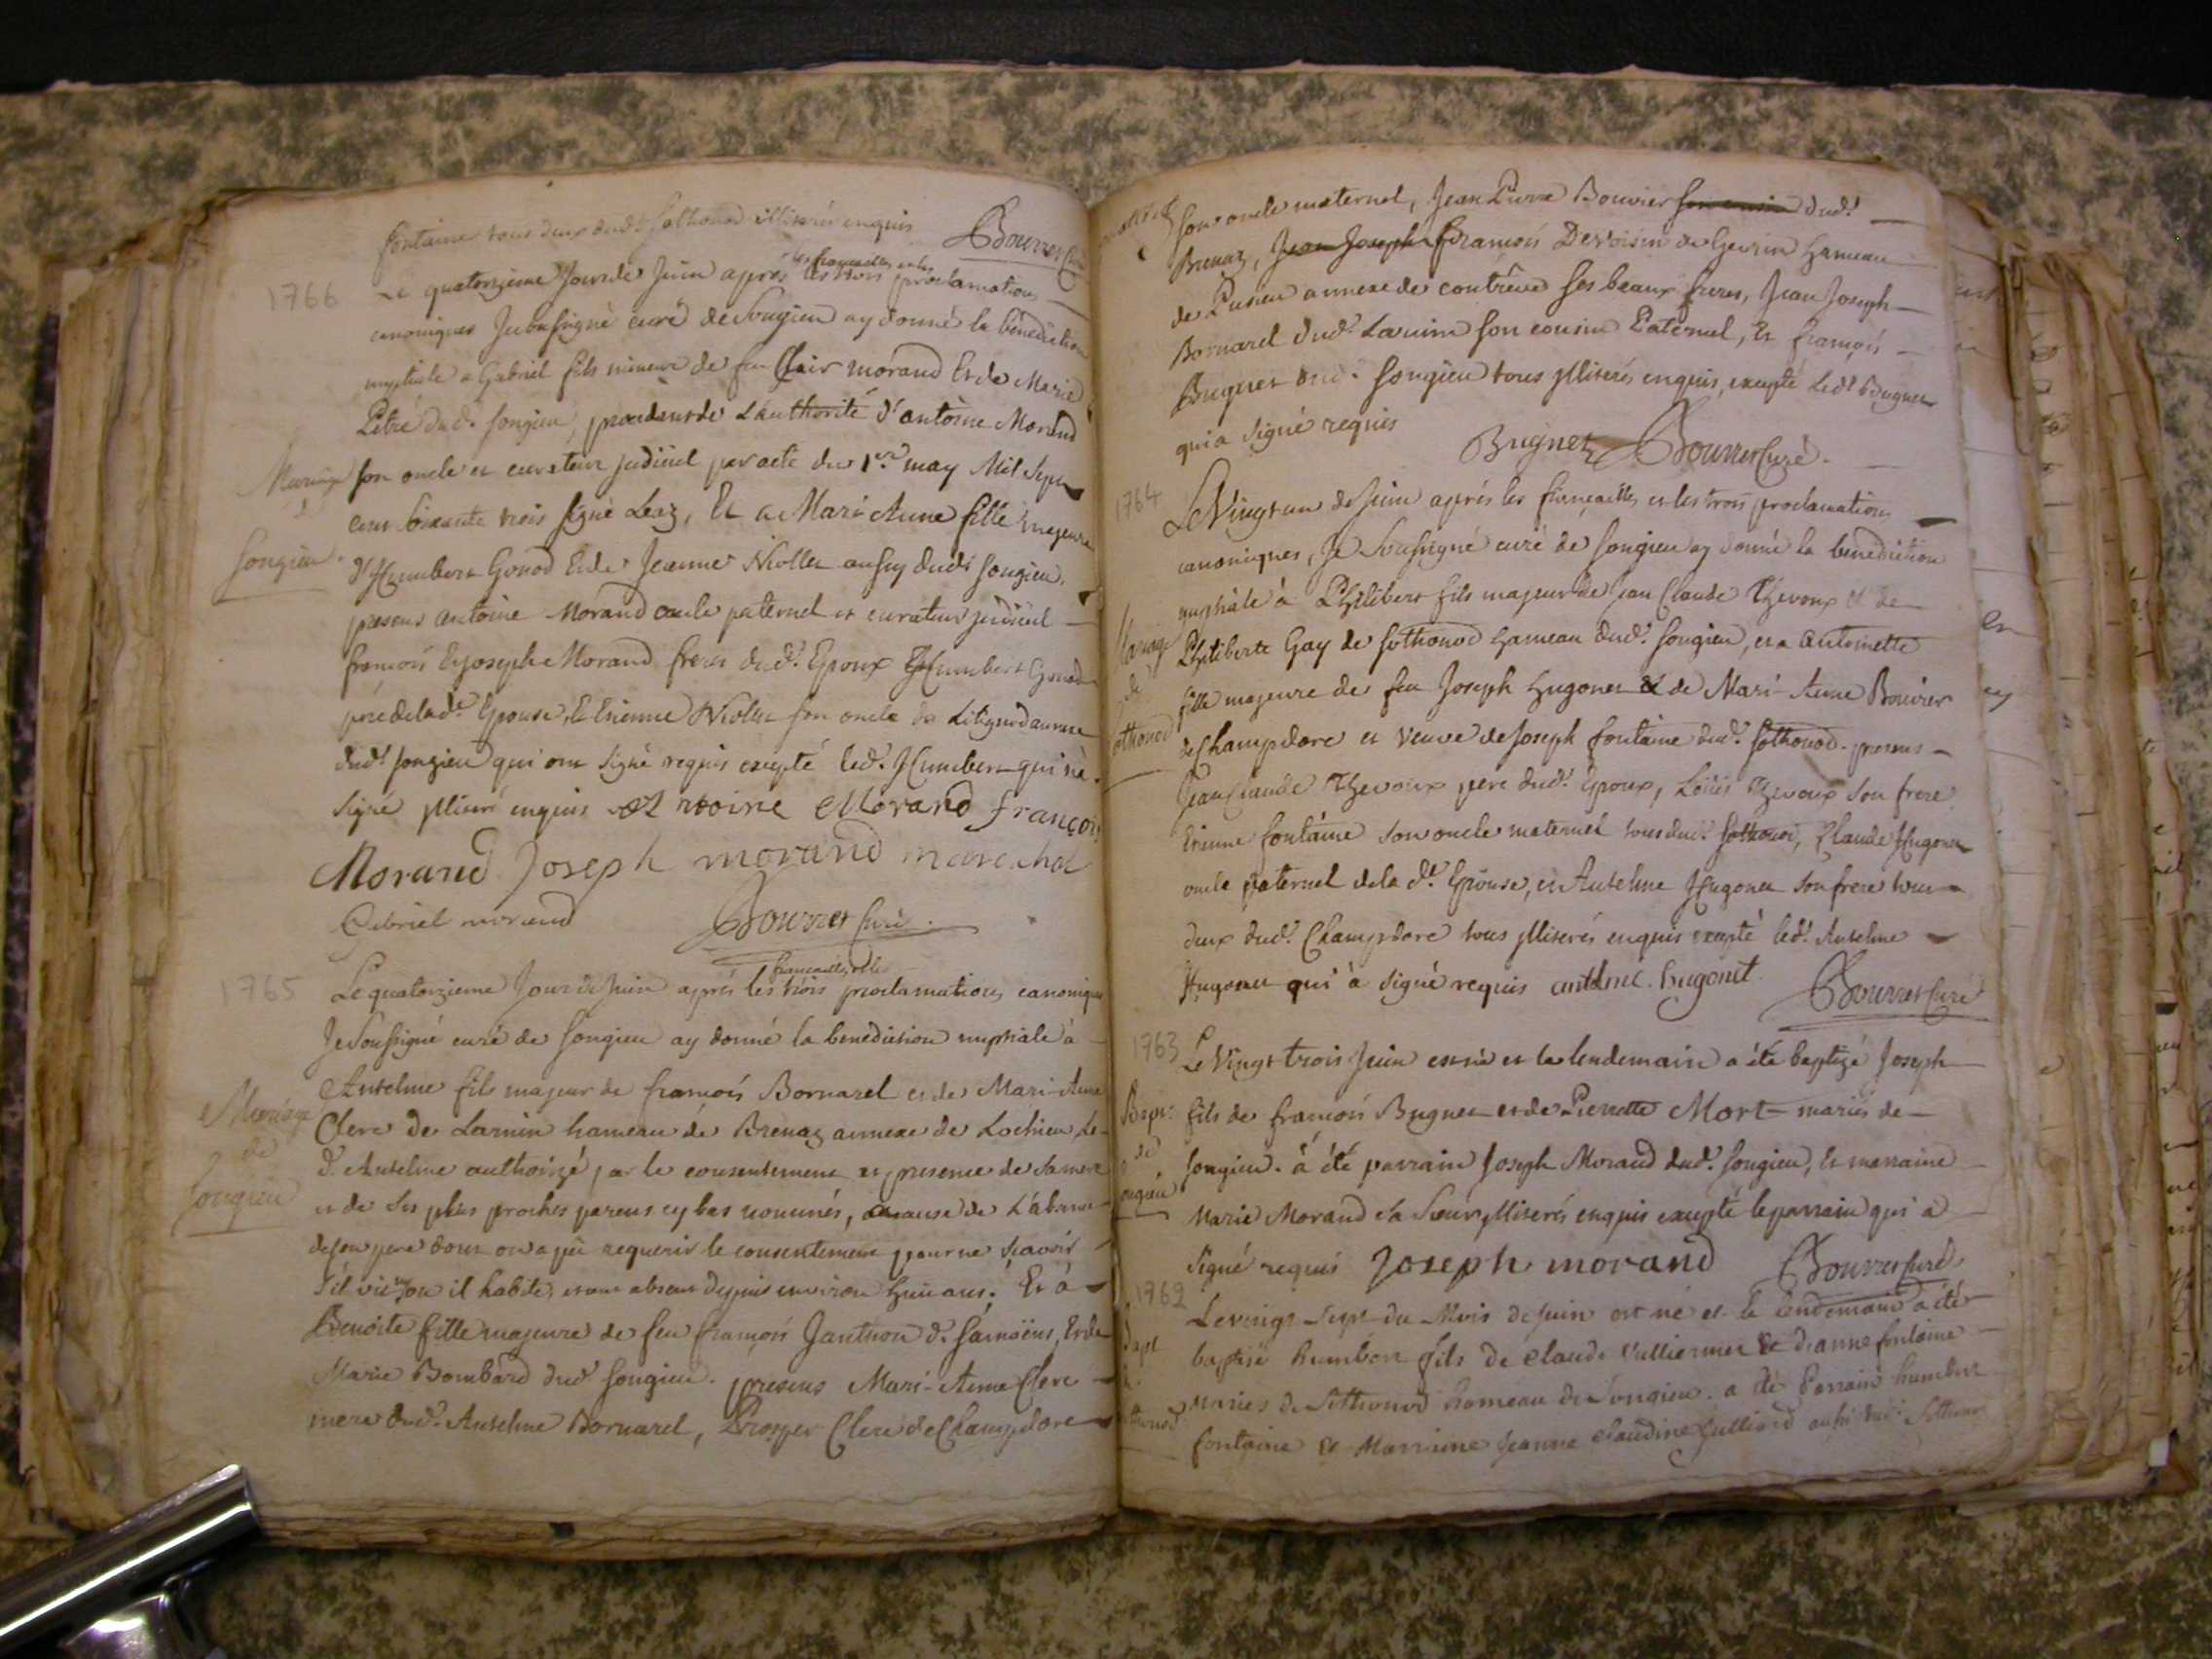 fontaine tous deux dud.t sothonod illiterés enquis Bourret Curé
les fiançailles et les
1766 Le quatorzieme Jour de Juin apres les trois proclamations
canoniques Je soussigné curé de Songieu ay donné la bénédiction
nuptiale a Gabriel fils mineur de feu Clair morand Et de Marie
Pétré dud.t songieu, procedant de L'authorité d'antoine Morand
Mariage son oncle et curateur judiciel par acte du 1.er may Mil Sept
cent soixante trois signé Leaz, Et a Mari-Anne fille majeure
Songieu. d'Humbert Gonod Et de Jeanne Niollet aussy dud.t songieu,
presens antoine Morand oncle paternel et curateur judiciel
françois Et joseph Morand freres dud.t Epoux Humbert Gonod
pere de lad.te Epouse, Et Etienne Niollet son oncle
dud.t songieu qui ont signé requis excepté led.t Humbert qui n'a
signé illiteré enquis Antoine Morand françois
Morand Joseph morand marechal
Gabriel morand Bourret Curé.
fiancailles et les
1765 Le quatorzieme Jour de Juin après les trois proclamations canoniques
Je Soussigné curé de songieu ay donné la benediction nuptiale à
Anthelme fils majeur de françois Bornarel et de Mari-Anne
Mariage Clerc de Larnin hameau de Brenaz annexe de Lochieu, Le
de d.t Anthelme authorizé par le consentement et presence de sa mere
Songieu et de ses plus proches parens cy bas nommés, a cause de L'absence
de son pere dont on a pû requerir le consentement pour ne scavoir
s'il vit, ou il habite, etant absent depuis environ huit ans; Et à
Benoite fille majeure de feu françois Janthon de samoëns, Et de
Marie Bombard dud.t songieu. presens Mari-Anne Clerc
mere dud.t Anthelme Bornarel, Prosper Clerc de Champdore
son oncle maternel, Jean Pierre Bouvier son cousin dud.t
Brenaz, Jean Joseph François Devoisin de Gevrin hameau
de Lusieu annexe de contrêve ses beaux freres, Jean Joseph
Bornarel dud.t Larnin son cousin Paternel, Et françois
Bugnet dud.t songieu tous illiterés enquis, excepté led.t Bugnet
qui a signé requis Bugnet Bourret Curé.
1764 Le Vingt un de Juin aprés les fiançailles et les trois proclamations
canoniques, Je Soussigné curé de songieu ay donné la benediction
nuptiale à Philibert fils majeur de Jean Claude Thevoux et de
Mariage Philiberte Gay de sothonod hameau dud.t songieu, et a Antoinette
de fille majeure de feu Joseph hugonet & de Mari-Anne Bouvier
sothonod de Champdore et Veuve de Joseph fontaine dud.t sothonod. presens
Jean Claude Thevoux pere dud.t Epoux, Loüis Thevoux son frere
Etienne fontaine son oncle maternel tous dud.t sothonod, Claude Hugonet
oncle paternel de la d.te Epouse, et Anthelme Hugonet son frere tous
deux dud.t Champdore tous illiterés enquis excepté led.t Anthelme
Hugonet qui à signé requis antelme hugonet Bourret Curé
1763 Le Vingt trois Juin est né et le lendemain a été baptizé Joseph
Bapt: fils de françois Bugnet et de Pierrette Mort mariés de
de songieu. à été parrain Joseph Morand dud.t songieu, Et marraine
songieu Marie Morand sa Soeur illiterés enquis excepté le parrain qui a
signé requis Joseph morand Bourret Curé
1762 Le vingt sept du Mois de Juin est né et le lendemain a été
Bapt baptisé humbert fils de claude Vulliermet & d'anne fontaine
mariés de Sothonod hameau de Songieu. a été Parrain humbert
sothonod. fontaine Et Marraine Jeanne claudine Julliard aussi dud.t Sothonod